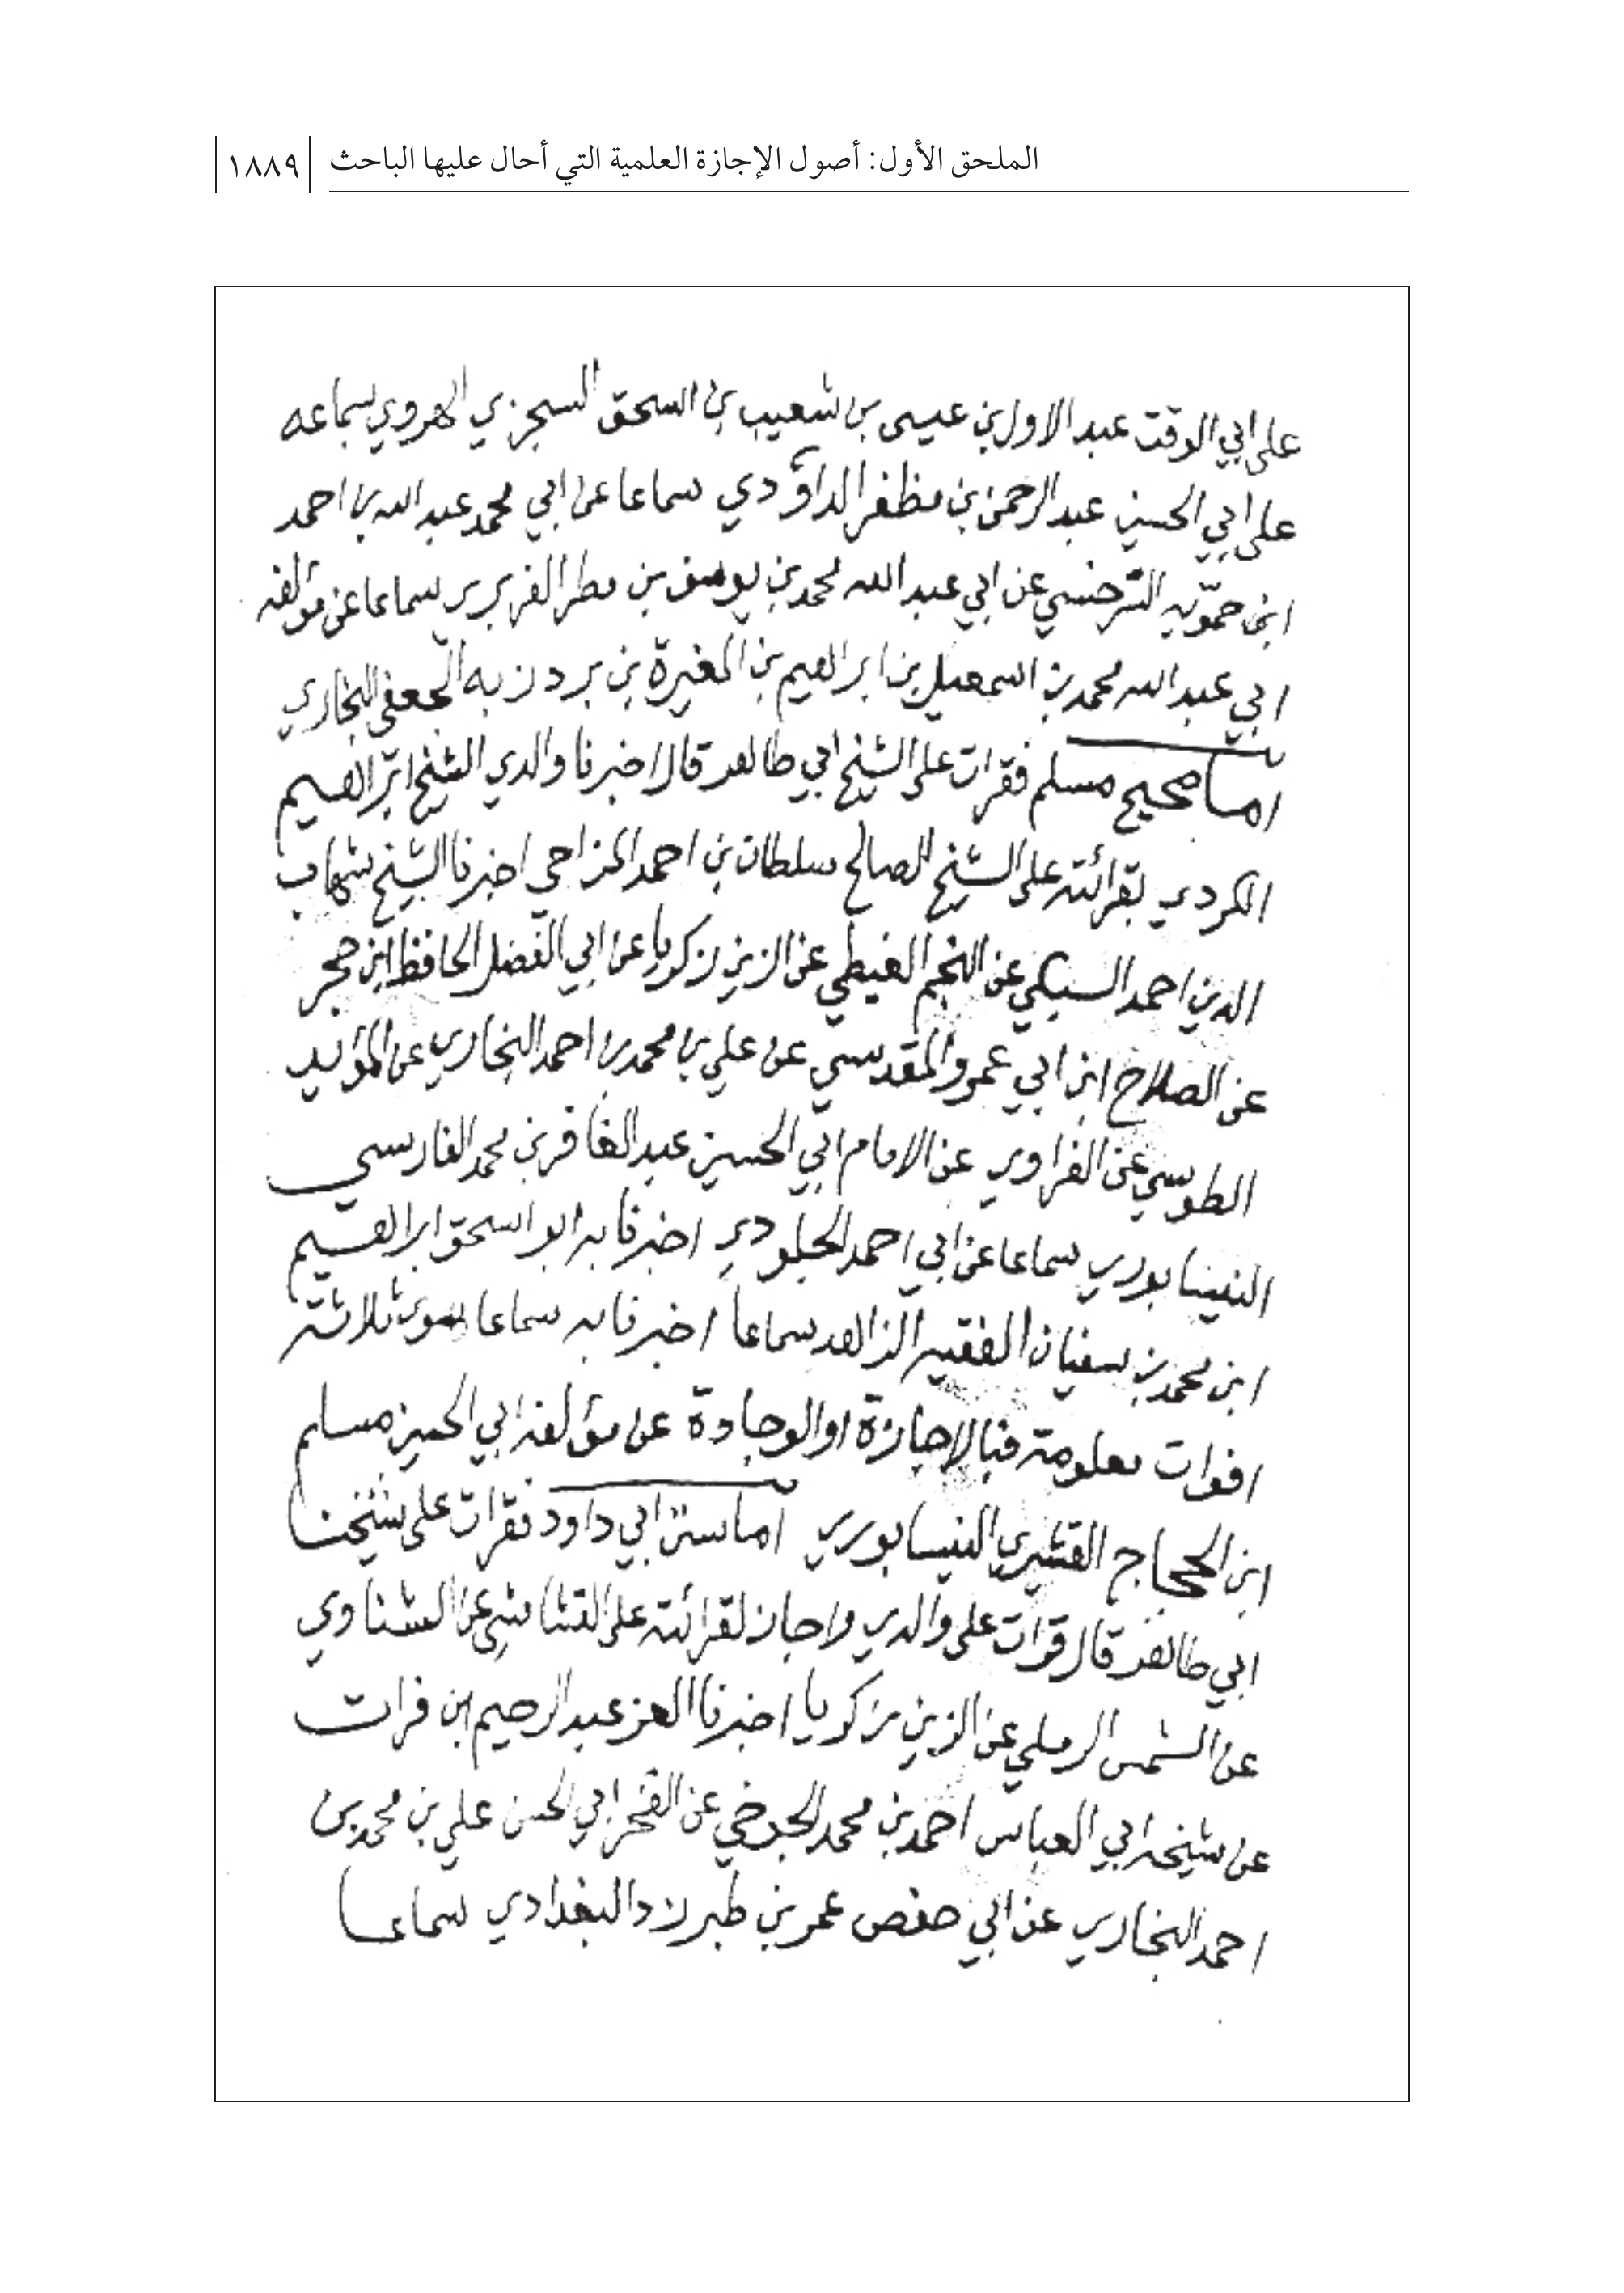 الملحق الأول: أصول الإجازة العلمية التي أحال عليها الباحث
١٨٨٩
على ابي الوقت عبد الاول بن عيسى بن شعيب بن اسحق السجزي الهروي بسماعه
على ابي الحسين عبد الرحمن بن مظفر الداودي سماعا عن ابي محمد عبد الله بن احمد
ابن حمويه السرخسي عن ابي عبد الله محمد بن يوسف بن مطر الفربري سماعا عن مؤلفه
ابي عبد الله محمد بن اسمعيل بن ابراهيم بن المغيرة بن بردزبه الجعفي البخاري
اما صحيح مسلم فقرات على الشيخ ابي طاهر قال اخبرنا والدي الشيخ ابراهيم
الكردي بقرائته على الشيخ الصالح سلطان بن احمد المزاحي اخبرنا الشيخ شهاب
الدين احمد السبكي عن النجم الغيطي عن الزين زكريا عن ابي الفضل الحافظ ابن حجر
عن الصلاح ابن ابي عمرو المقدسي عن علي بن محمد بن احمد البخاري عن المؤيد
الطوسي عن الفراوي عن الامام ابي الحسين عبد الغافر بن محمد الفارسي
النيسابوري سماعا عن ابي احمد الجلودي اخبرنا به ابو اسحق ابراهيم
ابن محمد بن سفيان الفقيه الزاهد سماعا اخبرنا به سماعا سوى ثلاثة
افوات معلومة فبالاجازة او الوجادة عن مؤلفه ابي الحسين مسلم
ابن الحجاج القشيري النيسابوري اما سنن ابي داود فقرات على شيخنا
ابي طاهر قال قرات على والدي واجاز لقرائته على القشاشي عن الشناوي
عن الشمس الرملي عن الزين زكريا اخبرنا العز عبد الرحيم ابن فرات
عن شيخه ابي العباس احمد بن محمد الجوخي عن الفخر ابي الحسن علي بن محمد بن
احمد البخاري عن ابي حفص عمر بن طبرزد البغدادي سماعا